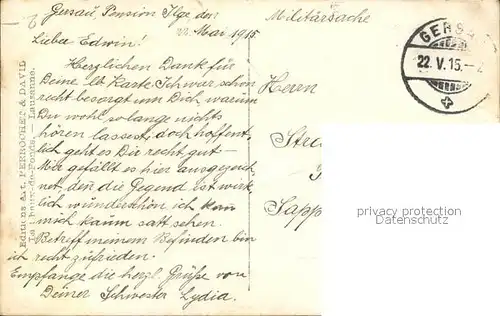 Gersau, Pension Ilge, den
22. Mai 1915
Militärsache
Lieber Edwin!
Herzlichen Dank für
Deine lb. Karte. Ich war schon
recht besorgt um Dich, warum
Du wohl so lange nichts
hören lassest, doch hoffent-
lich geht es Dir recht gut –
Mir gefällt es hier ausgezeich-
net, denn die Gegend ist wirk-
lich wunderschön ich kan
mich kaum satt sehen.
Betreff meinem Befinden bin
ich recht zufrieden.
Empfange die herzl. Grüße von
Deiner Schwester Lydia.
Herrn
Sapp
GERSAU
22. V. 15.
Editions Art. PERROCHET & DAVID
La Chaux-de-Fonds. — Lausanne.
privacy protection
Datenschutz